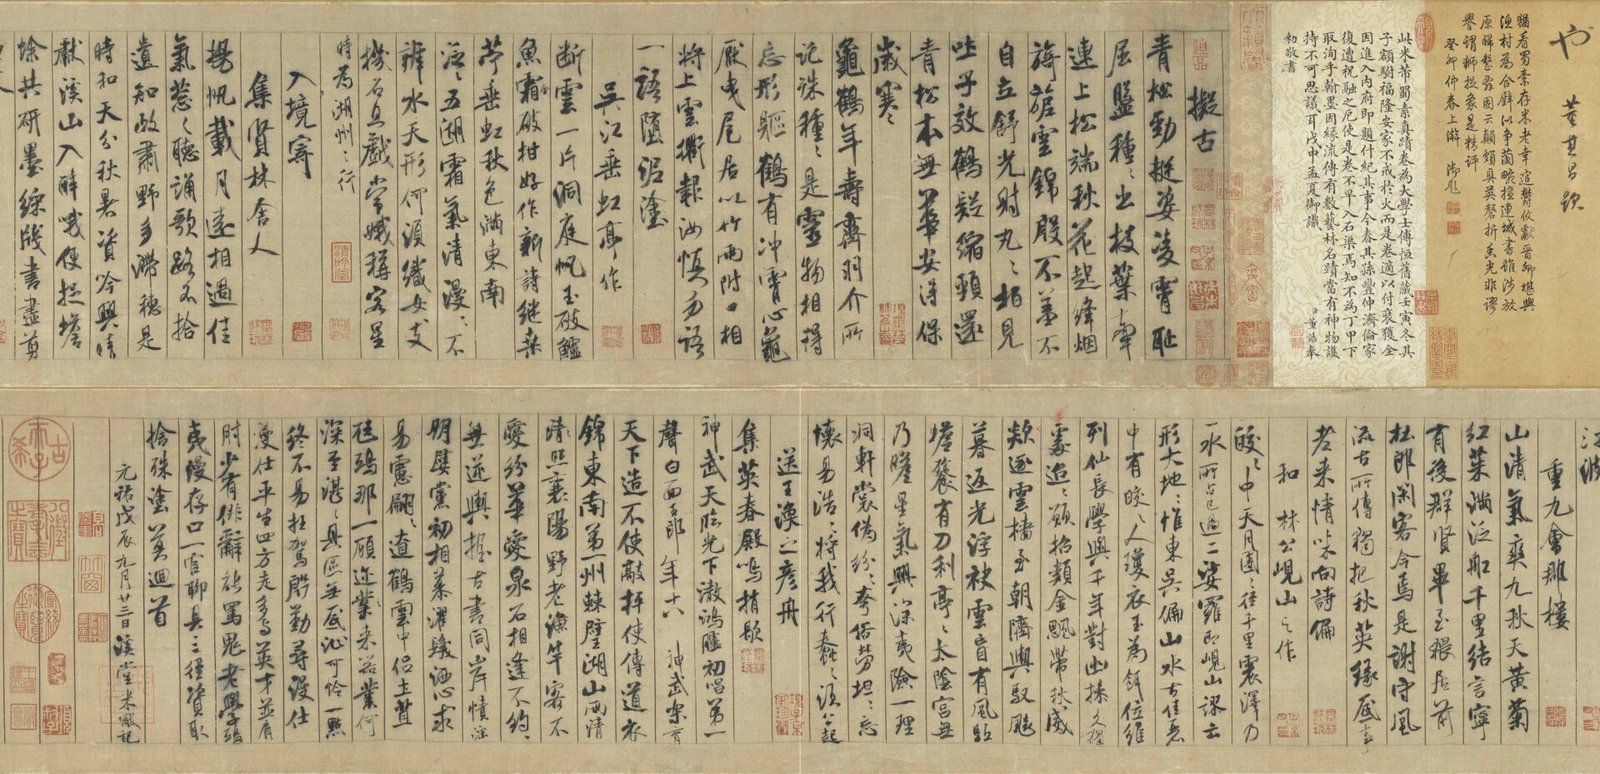 也 董其昌題
猶看蜀素存米老幸遣鬱攸獻晉卿堪與
漁村為合辟以爭蘭畹擅連城書雖涉放
原歸整
因云顛頗具英聲折玉光非謬
譽謂獅捉象是精評
癸卯仲春上澣 御題
此米芾蜀素真蹟卷為大學士傅恒舊藏壬寅冬其
子額駙福隆安家不戒於火而是卷適以付裝獲全
因進入內府即題什紀其事今春其孫豐紳濟倫家
復遭祝融之厄使是卷不早入石渠焉知不為丁甲下
取洵乎翰墨因緣流傳有數藝林名蹟當有神物護
持不可思議耳戊申孟夏御識
臣董誥奉
勅敬書
擬古
青松勁挺姿凌霄恥
屈盤種種出枝葉牽
連上松端秋花起絳烟
旖旎雲錦殷不羞不
自立舒光射丸丸栢見
吐子效鶴疑縮頸還
青松本無華安得保
歲寒
龜鶴年壽齊羽介所
託殊種種是靈物相得
忘形軀鶴有冲霄心龜
厭曳尾居以竹兩附口相
將上雲衢報汝慎勿語
一語墮泥塗
吳江垂虹亭作
断雲一片洞庭帆玉破鱸
魚霜破柑好作新詩継桑
苧垂虹秋色滿東南
泛泛五湖霜氣清漫漫不
辨水天形何須織女支
機石且戲常娥稱客星
時為湖州之行
入境寄
集賢林舍人
揚帆載月遠相過佳
氣蔥蔥聽誦歌路不拾
遺知政肅野多滯穗是
時和天分秋暑資吟興晴
獻溪山入醉哦便捉蟾
蜍共研墨綵牋書盡剪
江波
重九會郡樓
山清氣爽九秋天黃菊
紅茱滿泛船千里結言寧
有後群賢畢至猥居前
杜郎閑客今焉是謝守風
流古所傳獨把秋英緣底事
老来情味向詩偏
和林公峴山之作
皎皎中天月團團徑千里震澤乃
一水所占已過二娑羅即峴山謬云
形大地地惟東吳偏山水古佳麗
中有皎皎人瓊衣玉為餌位維
列仙長學與千年對幽操久獨
處迢迢願招類金飈帶秋威
欻逐雲檣至朝隮輿馭飈
暮返光浮袂雲盲有風驅
蟾餮有刀利亭亭太陰宮無
乃瞻星氣興深夷險一理
洞軒裳偽紛紛夸俗勞坦坦忘
懷易浩浩將我行蠢蠢須公起
送王渙之彥舟
集英春殿鳴捎歇
神武天臨光下澈鴻臚初唱第一
聲白面玉郎年十八神武樂育
天下造不使敲抨使傳道衣
錦東南第一州棘璧湖山兩清
照襄陽野老漁竿客不
愛紛華愛泉石相逢不約約
無逆輿握古書同岸幘淫
朋嬖黨初相慕濯髪洒心求
易慮翩翩遼鶴雲中侣土苴
尪鴟那一顧迩来器業何
深至湛湛具區無底沚可怜一點
終不易枉駕殷勤尋漫仕
漫仕平生四方走多與英才並肩
肘少有俳辭能罵鬼老學鴟
夷慢存口一官聊具三徑資取
捨殊塗莫迴首
元祐戊辰九月廿三日溪堂米黻記